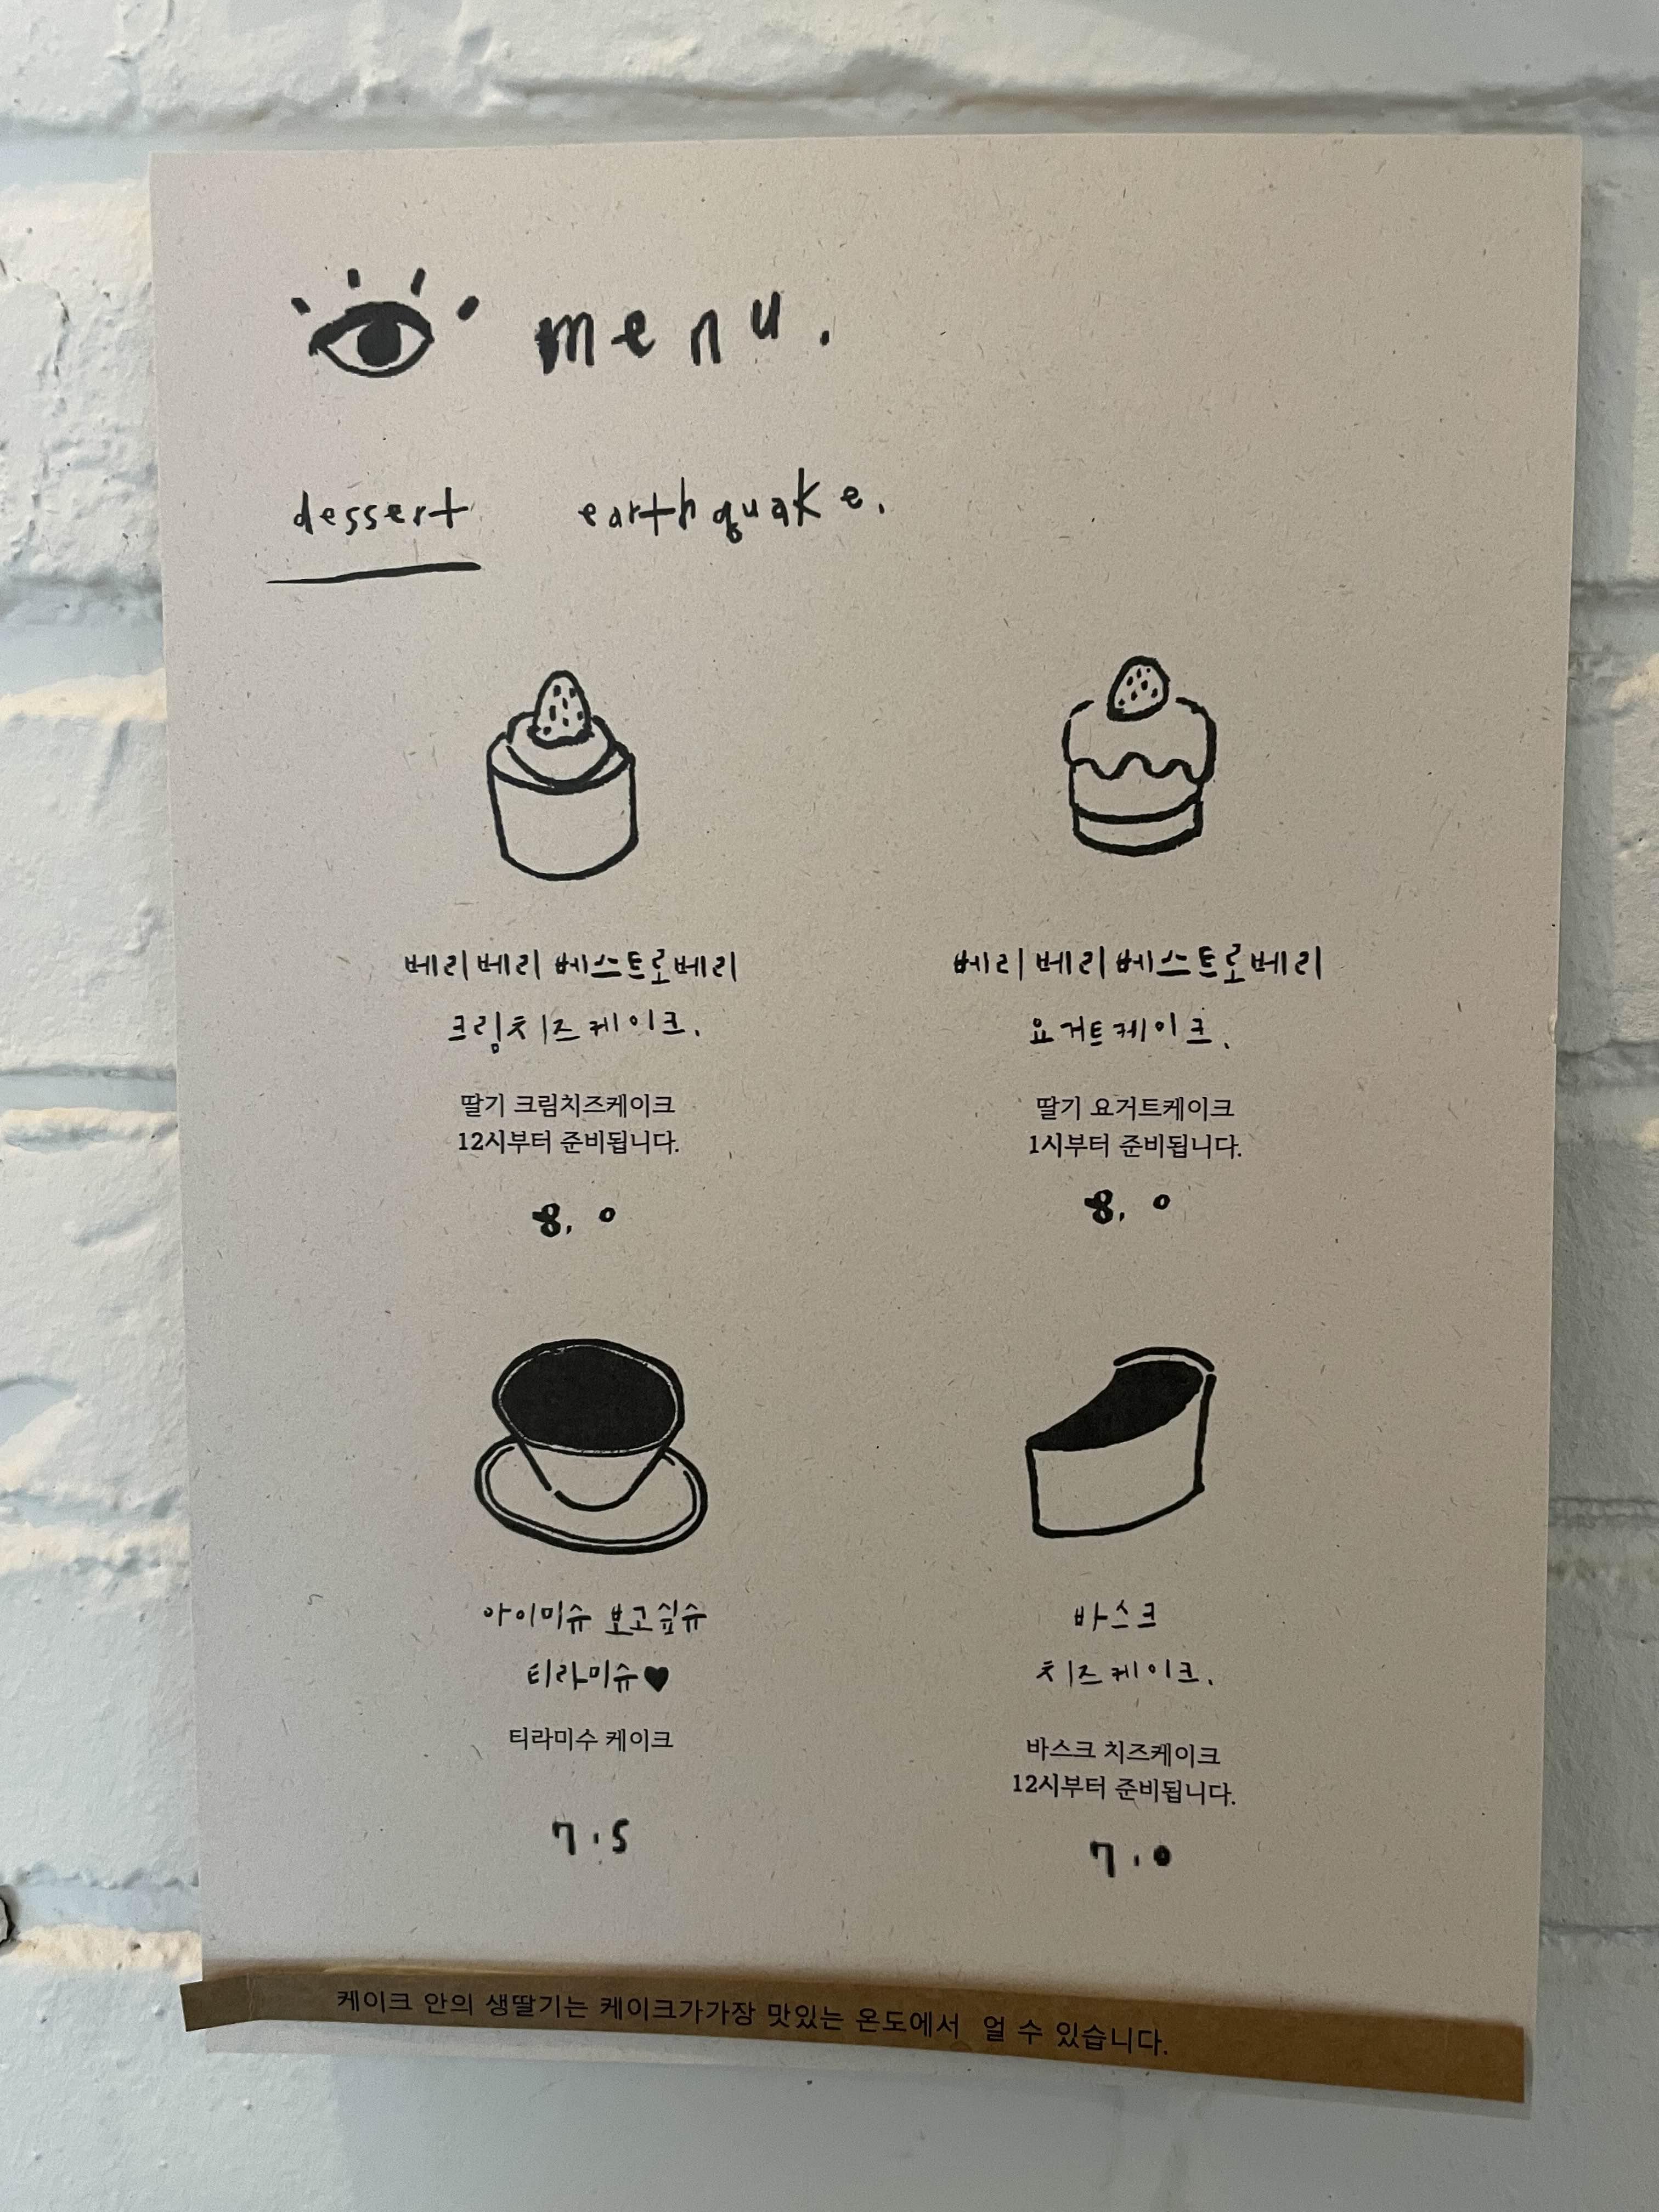 menu.
dessert earthquake.
베리베리 베스트로베리
크림치즈케이크.
딸기 크림치즈케이크
12시부터 준비됩니다.
8.0
베리베리베스트로베리
요거트케이크.
딸기 요거트케이크
1시부터 준비됩니다.
8.0
아이미슈 보고싶슈
티라미슈♥
티라미수 케이크
7.5
바스크
치즈케이크.
바스크 치즈케이크
12시부터 준비됩니다.
7.0
케이크 안의 생딸기는 케이크가가장 맛있는 온도에서 얼 수 있습니다.